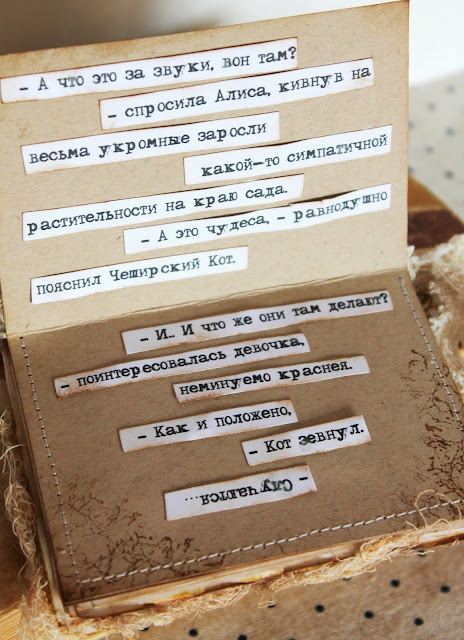 - А что это за звуки, вон там?
- спросила Алиса, кивнув на
весьма укромные заросли
какой-то симпатичной
растительности на краю сада.
- А это чудеса, - равнодушно
пояснил Чеширский Кот.
- И.. И что же они там делают?
- поинтересовалась девочка,
неминуемо краснея.
- Как и положено,
- Кот зевнул.
- Случаются...